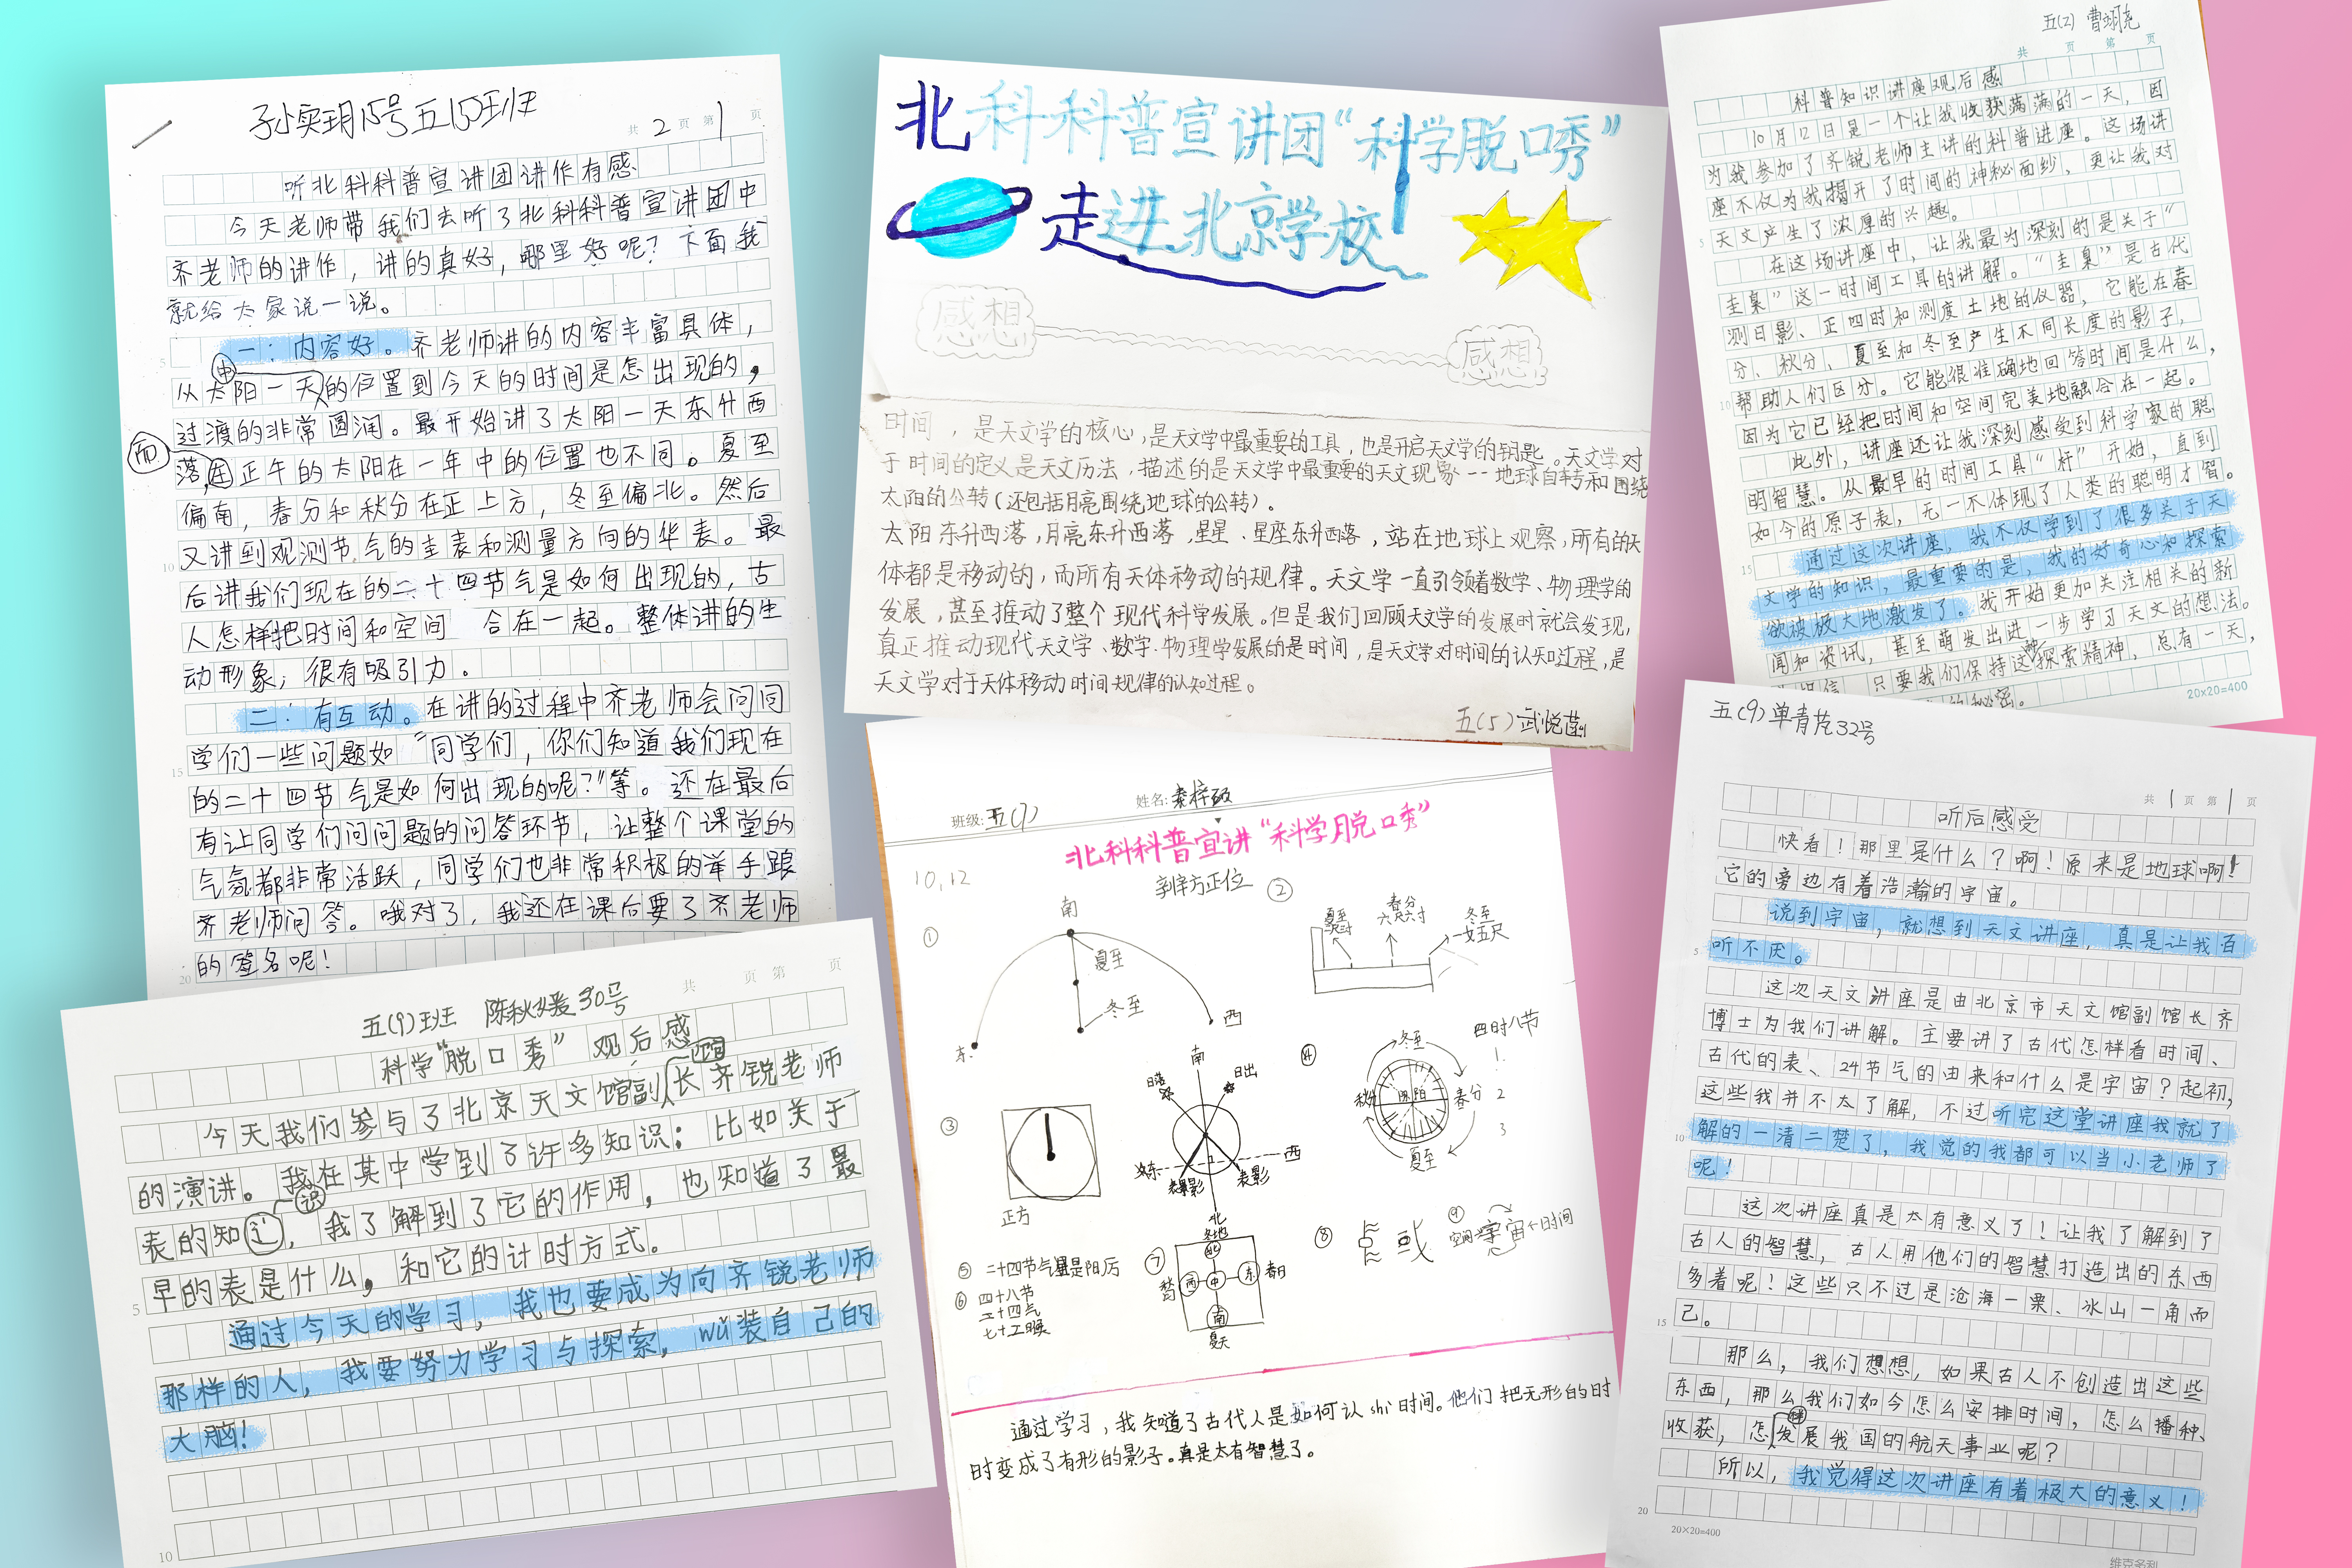 孙奕玥15号五(5)班
共2页 第1页
听北科科普宣讲团讲作有感
今天老师带我们去听了北科科普宣讲团中
齐老师的讲作，讲的真好，哪里好呢？下面我
就给大家说一说。
一：内容好。齐老师讲的内容丰富具体，
5
中
从太阳一天的位置到今天的时间是怎出现的，
过渡的非常圆润。最开始讲了太阳一天东升西
而
落，正午的太阳在一年中的位置也不同。夏至
偏南，春分和秋分在正上方，冬至偏北。然后
又讲到观测节气的圭表和测量方向的华表。最
10
后讲我们现在的二十四节气是如何出现的，古
人怎样把时间和空间 合在一起。整体讲的生
动形象，很有吸引力。
二：有互动。在讲的过程中齐老师会问同
学们一些问题如“同学们，你们知道我们现在
15
的二十四节气是如何出现的呢？”等。还在最后
有让同学们问问题的问答环节，让整个课堂的
气氛都非常活跃，同学们也非常积极的举手跟
齐老师问答。哦对了，我还在课后要了齐老师
的签名呢！
20
北科科普宣讲团“科学脱口秀”
走进北京学校
感想
感想
时间，是天文学的核心，是天文学中最重要的工具，也是开启天文学的钥匙。天文学对
于时间的定义是天文历法，描述的是天文学中最重要的天文现象--地球自转和围绕
太阳的公转(还包括月亮围绕地球的公转)。
太阳东升西落，月亮东升西落，星星、星座东升西落，站在地球上观察，所有的天
体都是移动的，而所有天体移动的规律。天文学一直引领着数学、物理学的
发展，甚至推动了整个现代科学发展。但是我们回顾天文学的发展时就会发现，
真正推动现代天文学、数学、物理学发展的是时间，是天文学对时间的认知过程，是
天文学对于天体移动时间规律的认知过程。
五(5)武悦菡
五(2) 曹玥尧
共 页 第 页
科普知识讲座观后感
10月12日是一个让我收获满满的一天，因
为我参加了齐锐老师主讲的科普进座。这场讲
座不仅为我揭开了时间的神秘面纱，更让我对
天文产生了浓厚的兴趣。
5
在这场讲座中，让我最为深刻的是关于“
圭臬”这一时间工具的讲解。“圭臬”是古代
测日影、正四时和测度土地的仪器，它能在春
分、秋分、夏至和冬至产生不同长度的影子，
帮助人们区分。它能很准确地回答时间是什么，
10
因为它已经把时间和空间完美地融合在一起。
此外，讲座还让我深刻感受到科学家的聪
明智慧。从最早的时间工具“杆”开始，直到
如今的原子表，无一不体现了人类的聪明才智。
通过这次讲座，我不仅学到了很多关于天
15
文学的知识，最重要的是，我的好奇心和探索
欲被极大地激发了。我开始更加关注相关的新
闻和资讯，甚至萌发出进一步学习天文的想法。
只要我们保持这种探索精神，总有一天，
的秘密。
20×20=400
五(9)班 陈秋媛30号
共 页 第 页
科学“脱口秀”观后感
今天我们参与了北京天文馆副馆长齐锐老师
的演讲。我在其中学到了许多知识：比如关于
表的知识，我了解到了它的作用，也知道了最
早的表是什么，和它的计时方式。
5
通过今天的学习，我也要成为向齐锐老师
那样的人，我要努力学习与探索，wǔ装自己的
大脑！
10
班级：五(7)
姓名：
北科科普宣讲“科学脱口秀”
10,12
① 南
夏至
冬至
东
西
②
夏至
春分
六尺六寸
冬至
一丈五尺
③
正方
南
日落
日出
西
东
表影
北
④
冬至
春分
夏至
秋分
阴 阳
四时八节
1.
2
3
⑤ 二十四节气是阳历
⑥ 四十八节
二十四气
七十二候
⑦ 冬地
北
西 中 东
南
夏天
⑧ 或
⑨ 空间→宇宙←时间
通过学习，我知道了古代人是如何认shi时间。他们把无形的时
时变成了有形的影子。真是太有智慧了。
五(9)单青芫32号
共1页 第1页
听后感受
快看！那里是什么？啊！原来是地球啊！
它的旁边有着浩瀚的宇宙。
说到宇宙，就想到天文讲座，真是让我百
5
听不厌。
这次天文讲座是由北京市天文馆副馆长齐
博士为我们讲解。主要讲了古代怎样看时间、
古代的表、24节气的由来和什么是宇宙？起初，
这些我并不太了解，不过听完这堂讲座我就了
10
解的一清二楚了，我觉的我都可以当小老师了
呢！
这次讲座真是太有意义了！让我了解到了
古人的智慧，古人用他们的智慧打造出的东西
多着呢！这些只不过是沧海一粟、冰山一角而
15
己。
那么，我们想想，如果古人不创造出这些
东西，那么我们如今怎么安排时间，怎么播种、
收获，怎样发展我国的航天事业呢？
所以，我觉得这次讲座有着极大的意义！
20
20×20=400